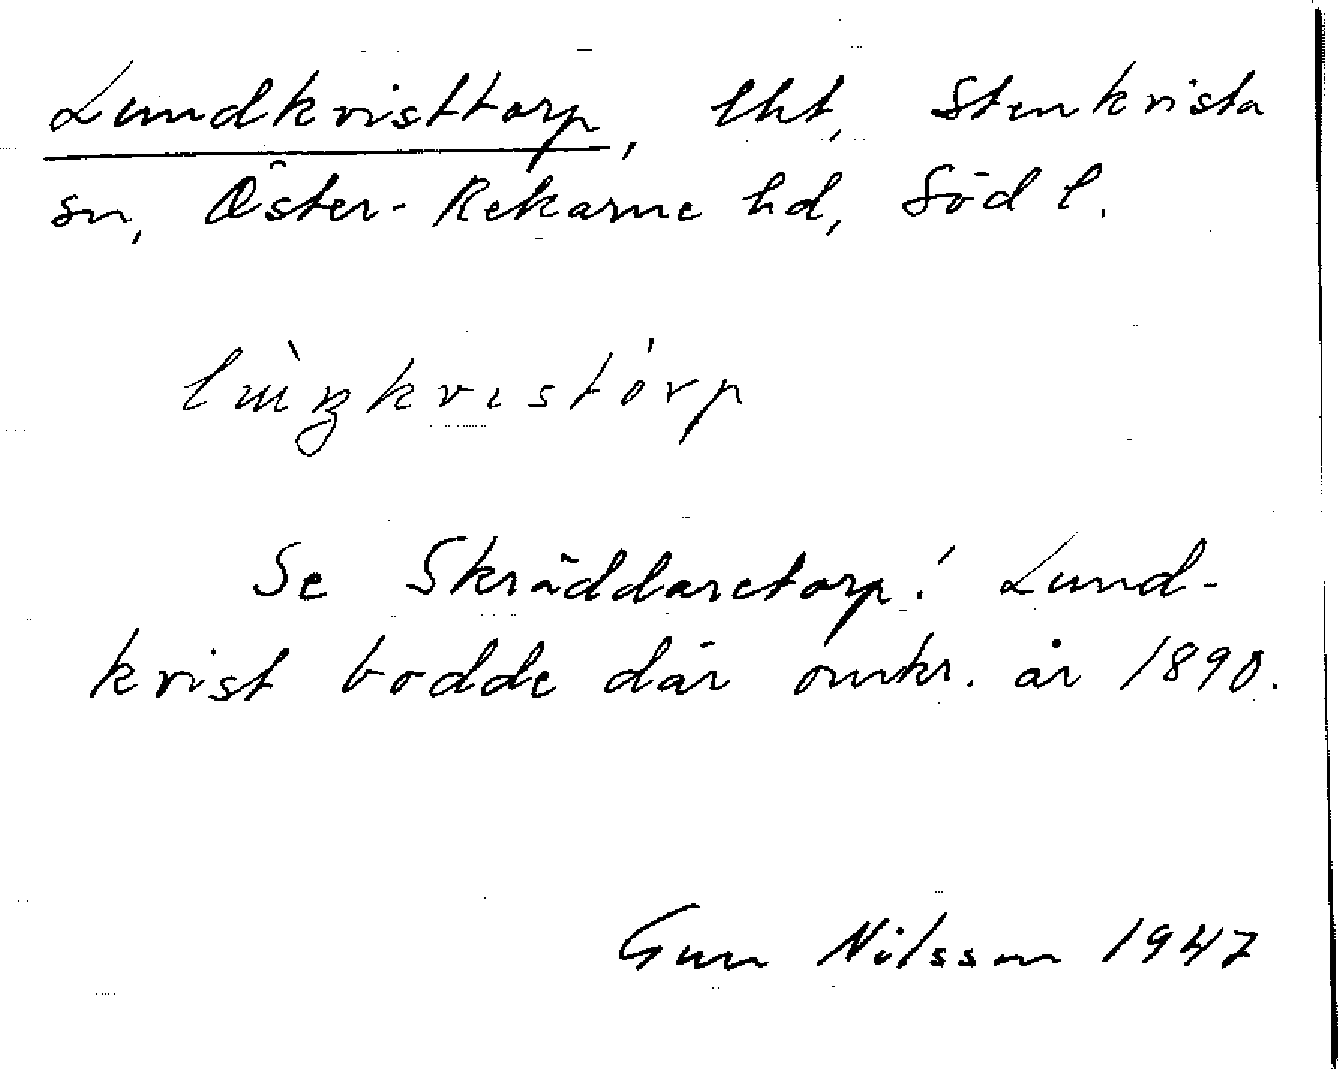 Lundkvisttorp, lht, Stenkvista
sn, Öster-Rekarne hd, Södl.
Se Skräddaretorp! Lund-
kvist bodde där omkr. år 1890.
Gun Nilsson 1947